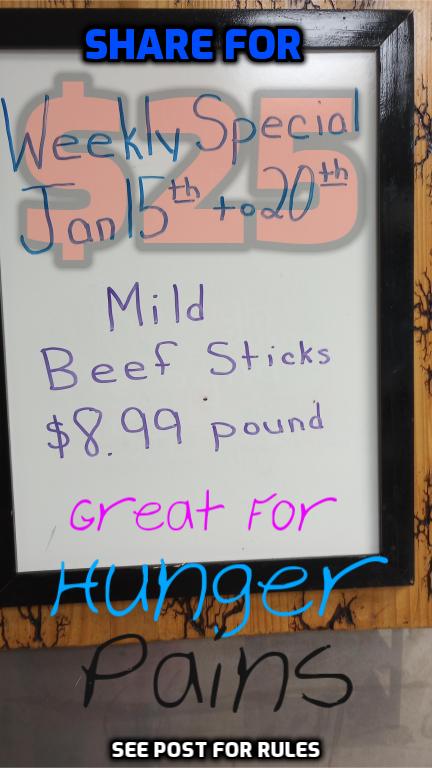 SHARE FOR
$25
Weekly Special
Jan 15th to 20th
Mild
Beef Sticks
$8.99 pound
Great For
Hunger
Pains
SEE POST FOR RULES